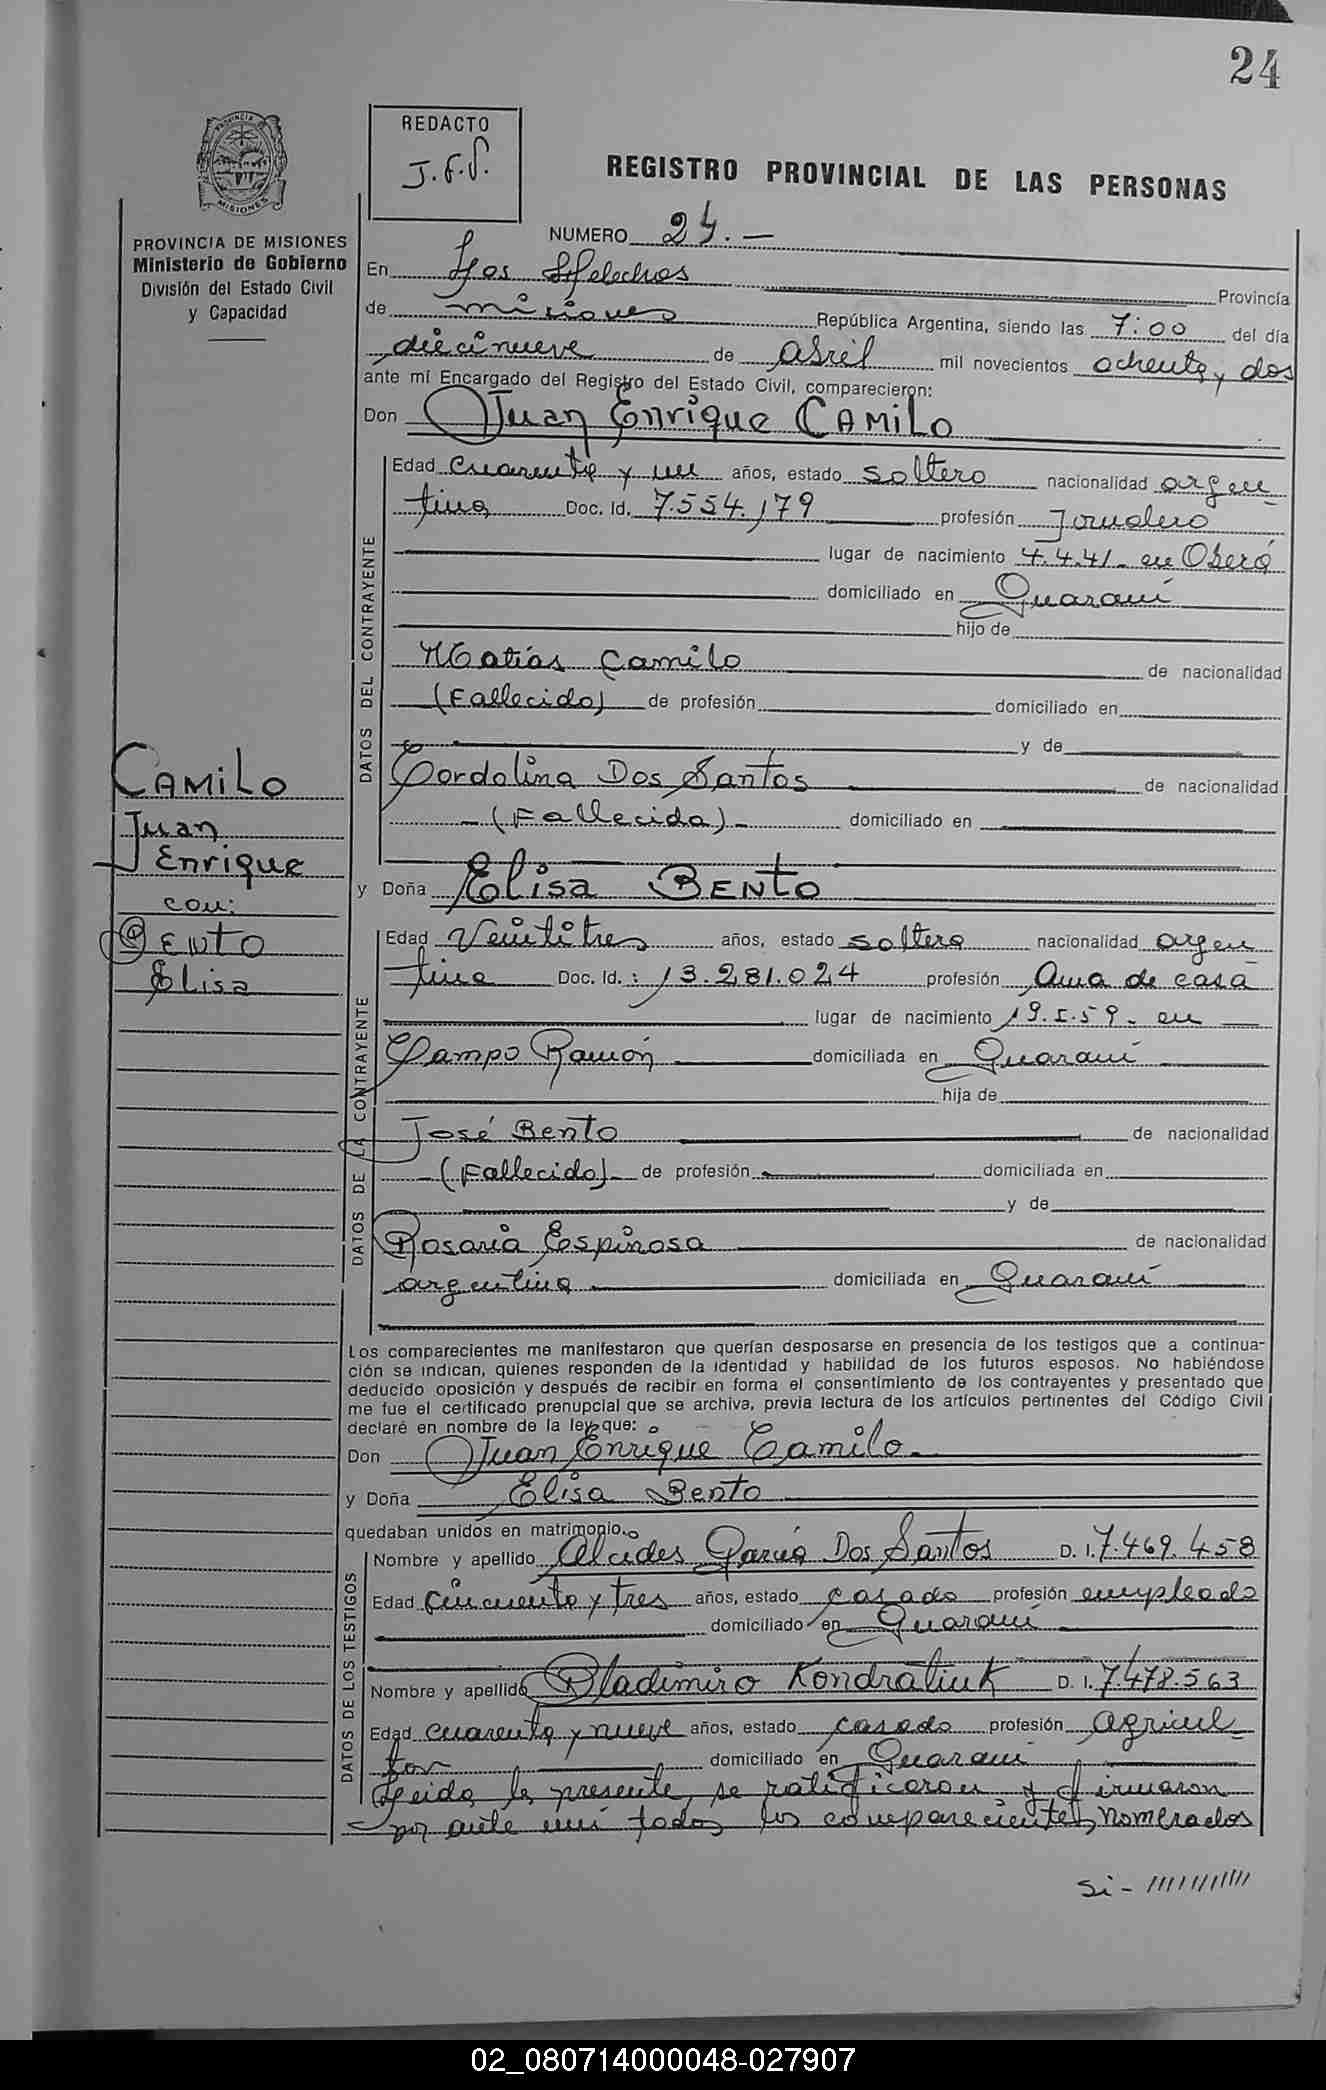 24
REDACTO
J.F.S.
REGISTRO PROVINCIAL DE LAS PERSONAS
PROVINCIA DE MISIONES
Ministerio de Gobierno
División del Estado Civil
y Capacidad
NUMERO 24.-
En Los Helechos Provincia
de misiones República Argentina, siendo las 7:00 del día
diecinueve de abril mil novecientos ochenta y dos
ante mí Encargado del Registro del Estado Civil, comparecieron:
Don Juan Enrique CAMILO
DATOS DEL CONTRAYENTE
Edad cuarenta y un años, estado soltero nacionalidad argen
tina Doc. Id. 7.554.179 profesión Jornalero
lugar de nacimiento 4.4.41- en Oberá
domiciliado en Guaraní
hijo de
Matías Camilo de nacionalidad
(Fallecido) de profesión domiciliado en
y de
Cordolina Dos Santos de nacionalidad
-(Fallecida)- domiciliado en
y Doña Elisa BENTO
CAMILO
Juan
Enrique
con:
BENTO
Elisa
DATOS DE LA CONTRAYENTE
Edad Veintitres años, estado soltera nacionalidad argen
tina Doc. Id.: 13.281.024 profesión Ama de casa
lugar de nacimiento 19.5.59- en
Campo Ramón domiciliada en Guaraní
hija de
José Bento de nacionalidad
-(Fallecido)- de profesión domiciliada en
y de
Rosaria Espinosa de nacionalidad
argentina domiciliada en Guaraní
Los comparecientes me manifestaron que querían desposarse en presencia de los testigos que a continua-
ción se indican, quienes responden de la identidad y habilidad de los futuros esposos. No habiéndose
deducido oposición y después de recibir en forma el consentimiento de los contrayentes y presentado que
me fue el certificado prenupcial que se archiva, previa lectura de los artículos pertinentes del Código Civil
declaré en nombre de la ley que:
Don Juan Enrique Camilo
y Doña Elisa Bento
quedaban unidos en matrimonio.
DATOS DE LOS TESTIGOS
Nombre y apellido Alcides García Dos Santos D. I. 7.469.458
Edad cincuenta y tres años, estado casado profesión empleado
domiciliado en Guaraní
Nombre y apellido Bladimiro Kondratiuk D. I. 7.478.563
Edad cuarenta y nueve años, estado casado profesión Agricul
tor domiciliado en Guaraní
Leida la presente, se ratificaron y firmaron
por ante mi todos los comparecientes nomerados
Si-
02_080714000048-027907